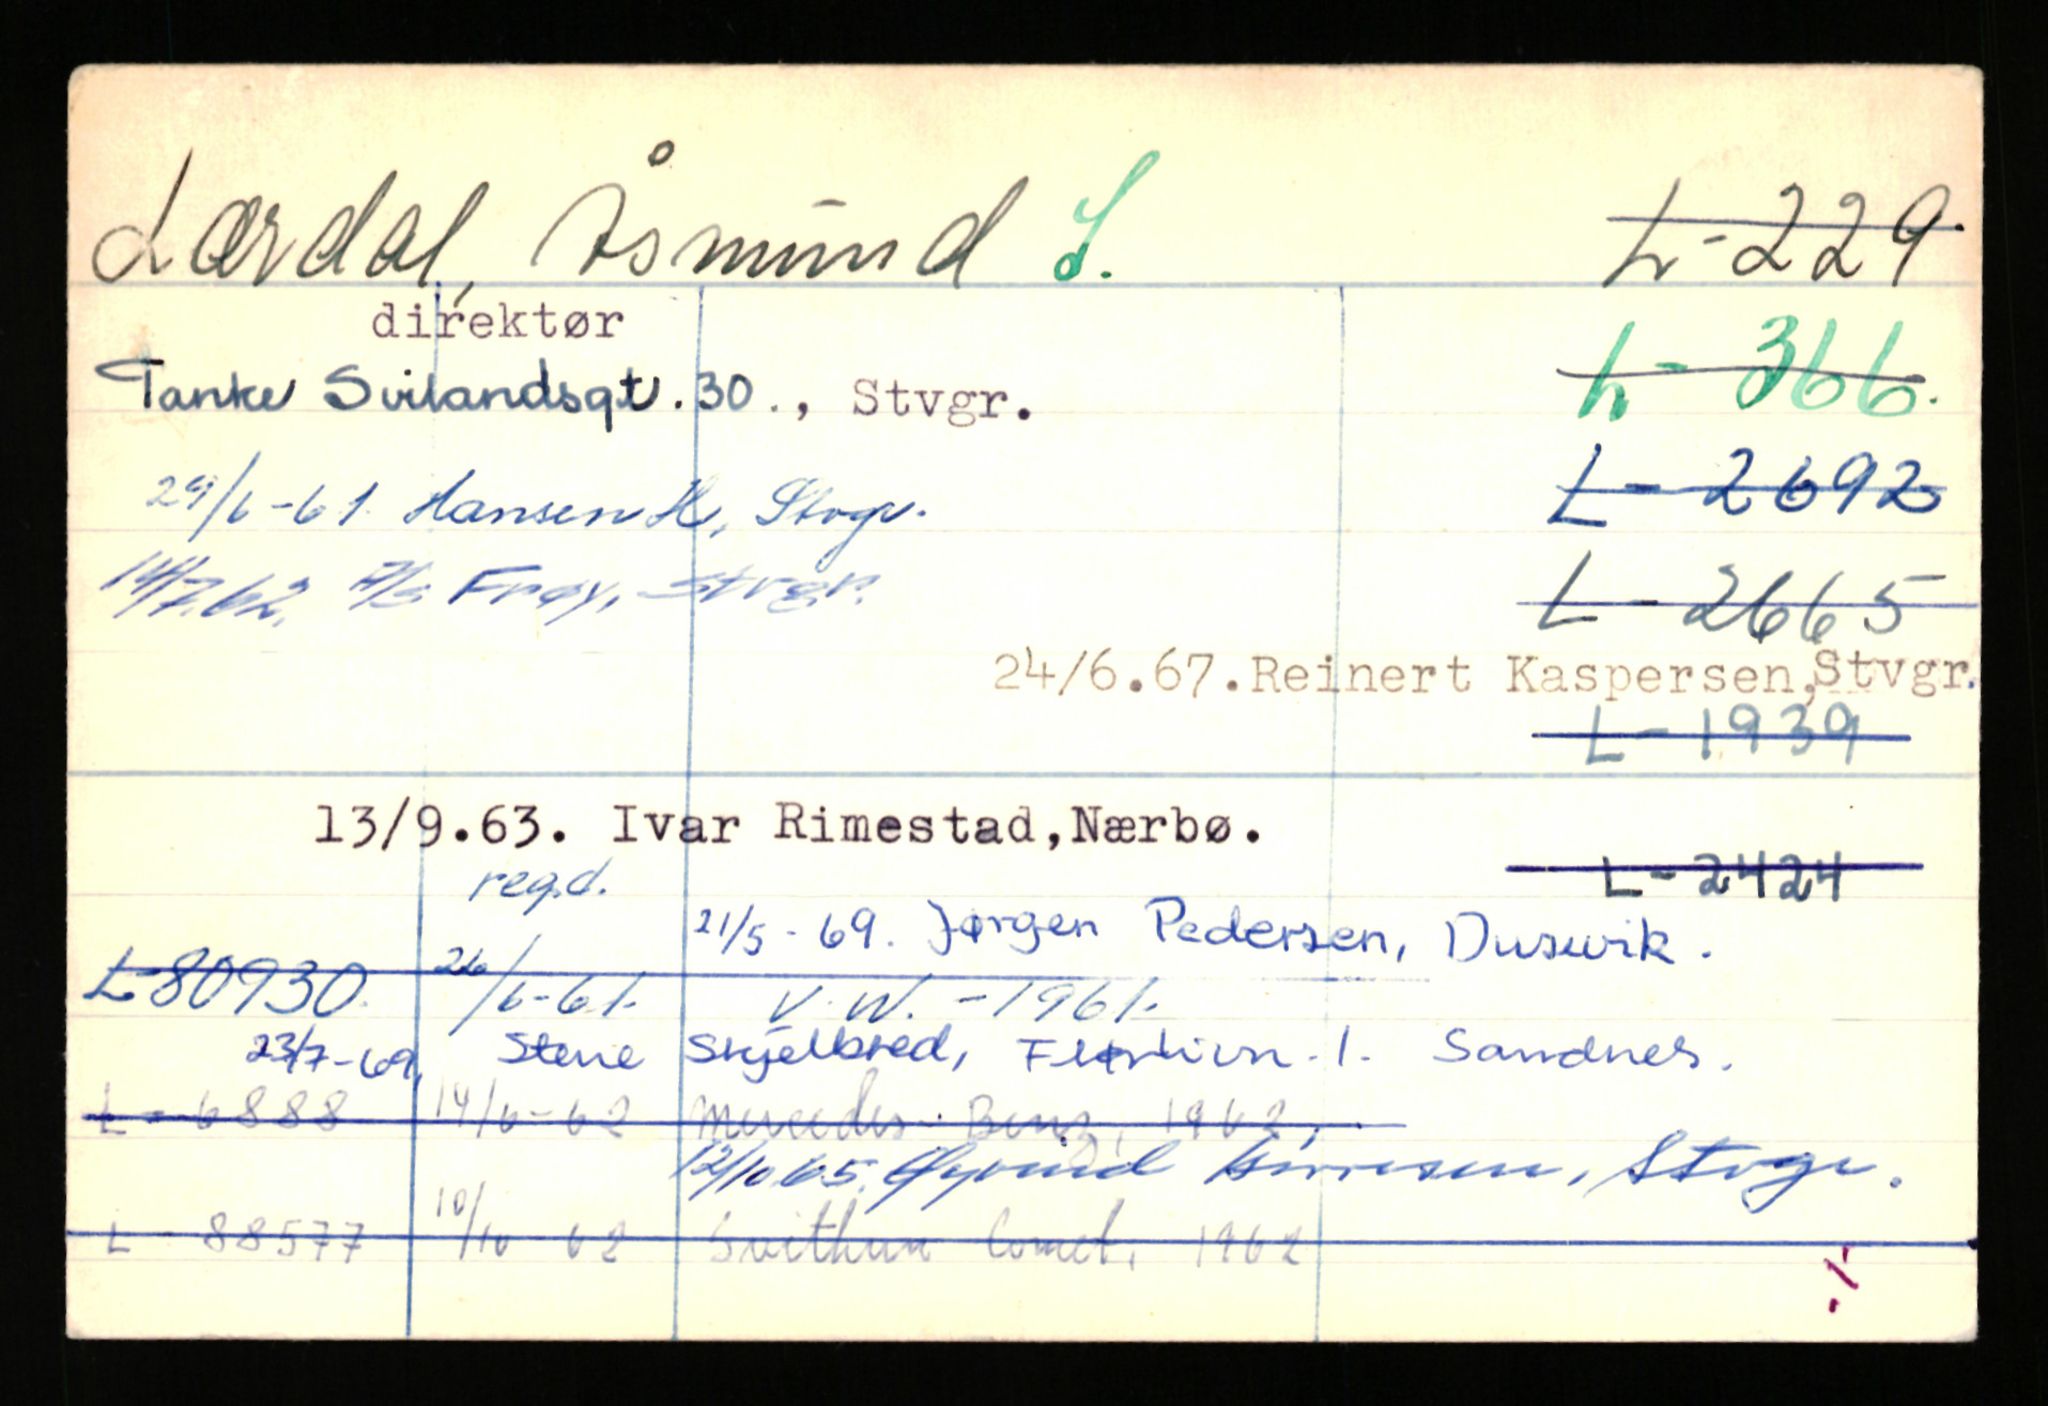 Lærdal, Åsmund S. L-229
direktør
Tanke Svilandsgt. 30., Stvgr. L-366.
29/6-61. Hansen H, Stvgr. L-2692
14/7.62. A/S Frøy, Stvgr. L-2665
24/6.67. Reinert Kaspersen, Stvgr.
L-1939
13/9.63. Ivar Rimestad, Nærbø.
L-2424
reg.d.
21/5-69. Jørgen Pedersen, Dusevik.
L-80930. 26/6-61. V.W. -1961.
23/7-69, Stene Skjelbred, 1. Sandnes.
L-6888 14/6-62 Mercedes-Benz, 1962,
12/10.65. Øyvind Stvgr.
L-88577 10/10 62 Svithun Comet, 1962
./.